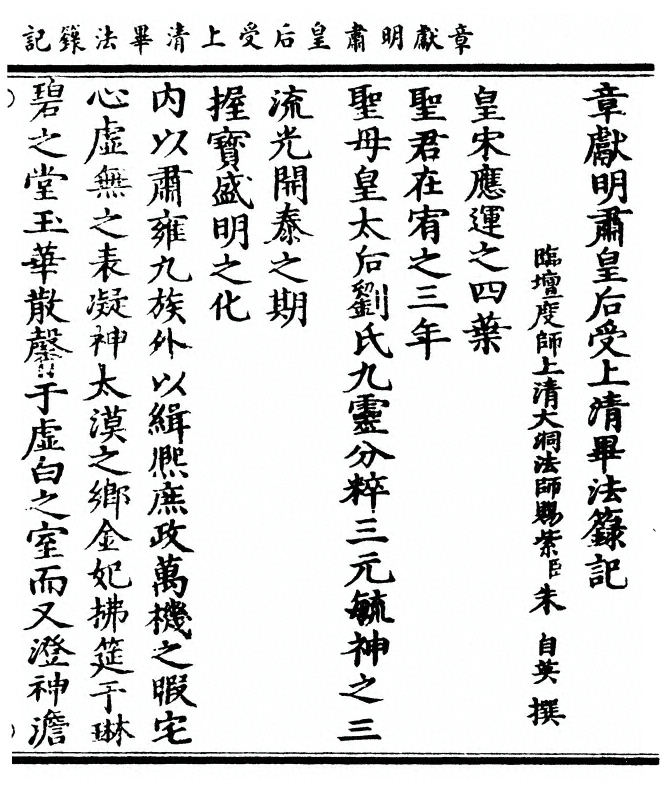 章獻明肅皇后受上清畢法籙記
章獻明肅皇后受上清畢法籙記
臨壇度師上清大洞法師賜紫臣朱自英撰
皇宋應運之四葉
聖君在宥之三年
聖母皇太后劉氏九靈分粹三元毓神之三
流光開泰之期
握寶盛明之化
內以肅雍九族外以緝熈庶政萬機之暇宅
心虛無之表凝神太漠之鄉金妃拂筵于琳
碧之堂玉華散馨于虛白之室而又澄神澹